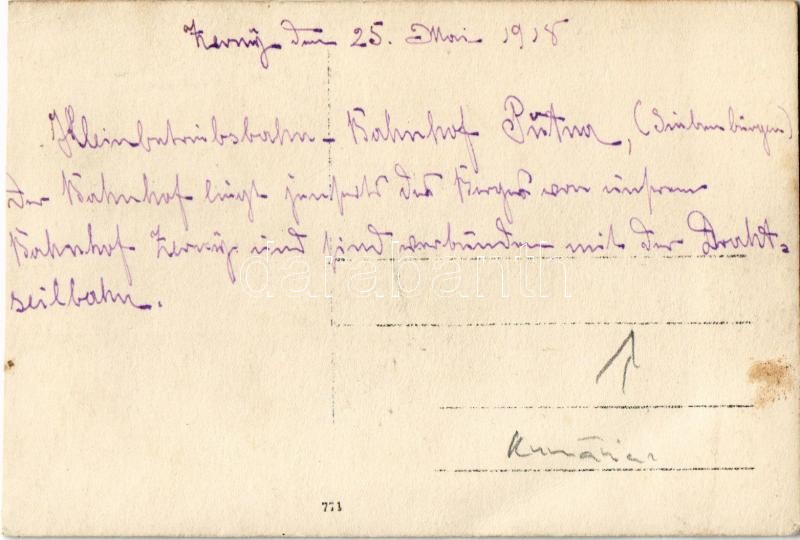 den 25. Mai 1918
Kleinbetriebsbahn-Bahnhof Putna, (Siebenbürgen)
Der Bahnhof liegt jenseits des Berges von unserem
Bahnhof und sind verbunden mit der Draht=
seilbahn.
darabanth
771